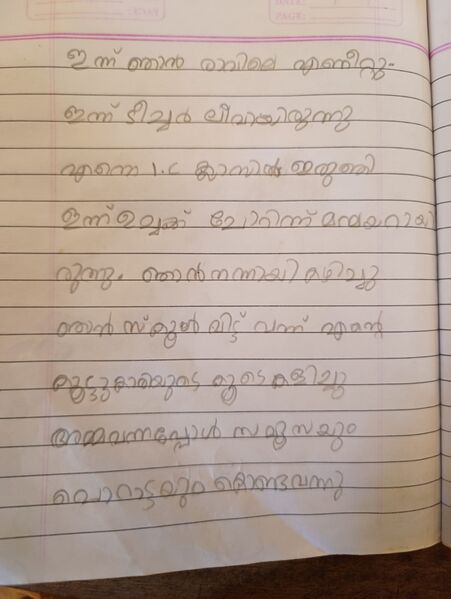 ഇന്ന് ഞാൻ രാവിലെ എണീറ്റു.
ഇന്ന് ടീച്ചർ ലീവായിരുന്നു
എന്നെ 1.C ക്ലാസിൽ ഇരുത്തി
ഇന്ന് ഉച്ചക്ക് ചോറിന്ന്
രുന്നു. ഞാൻ നന്നായി കഴിച്ചു
ഞാൻ സ്കൂൾ വിട്ട് വന്ന് എന്റെ
കൂട്ടുകാരിയുടെ കൂടെ കളിച്ചു
അമ്മവന്നപ്പോൾ സമൂസയും
പൊറാട്ടയും കൊണ്ടുവന്നു